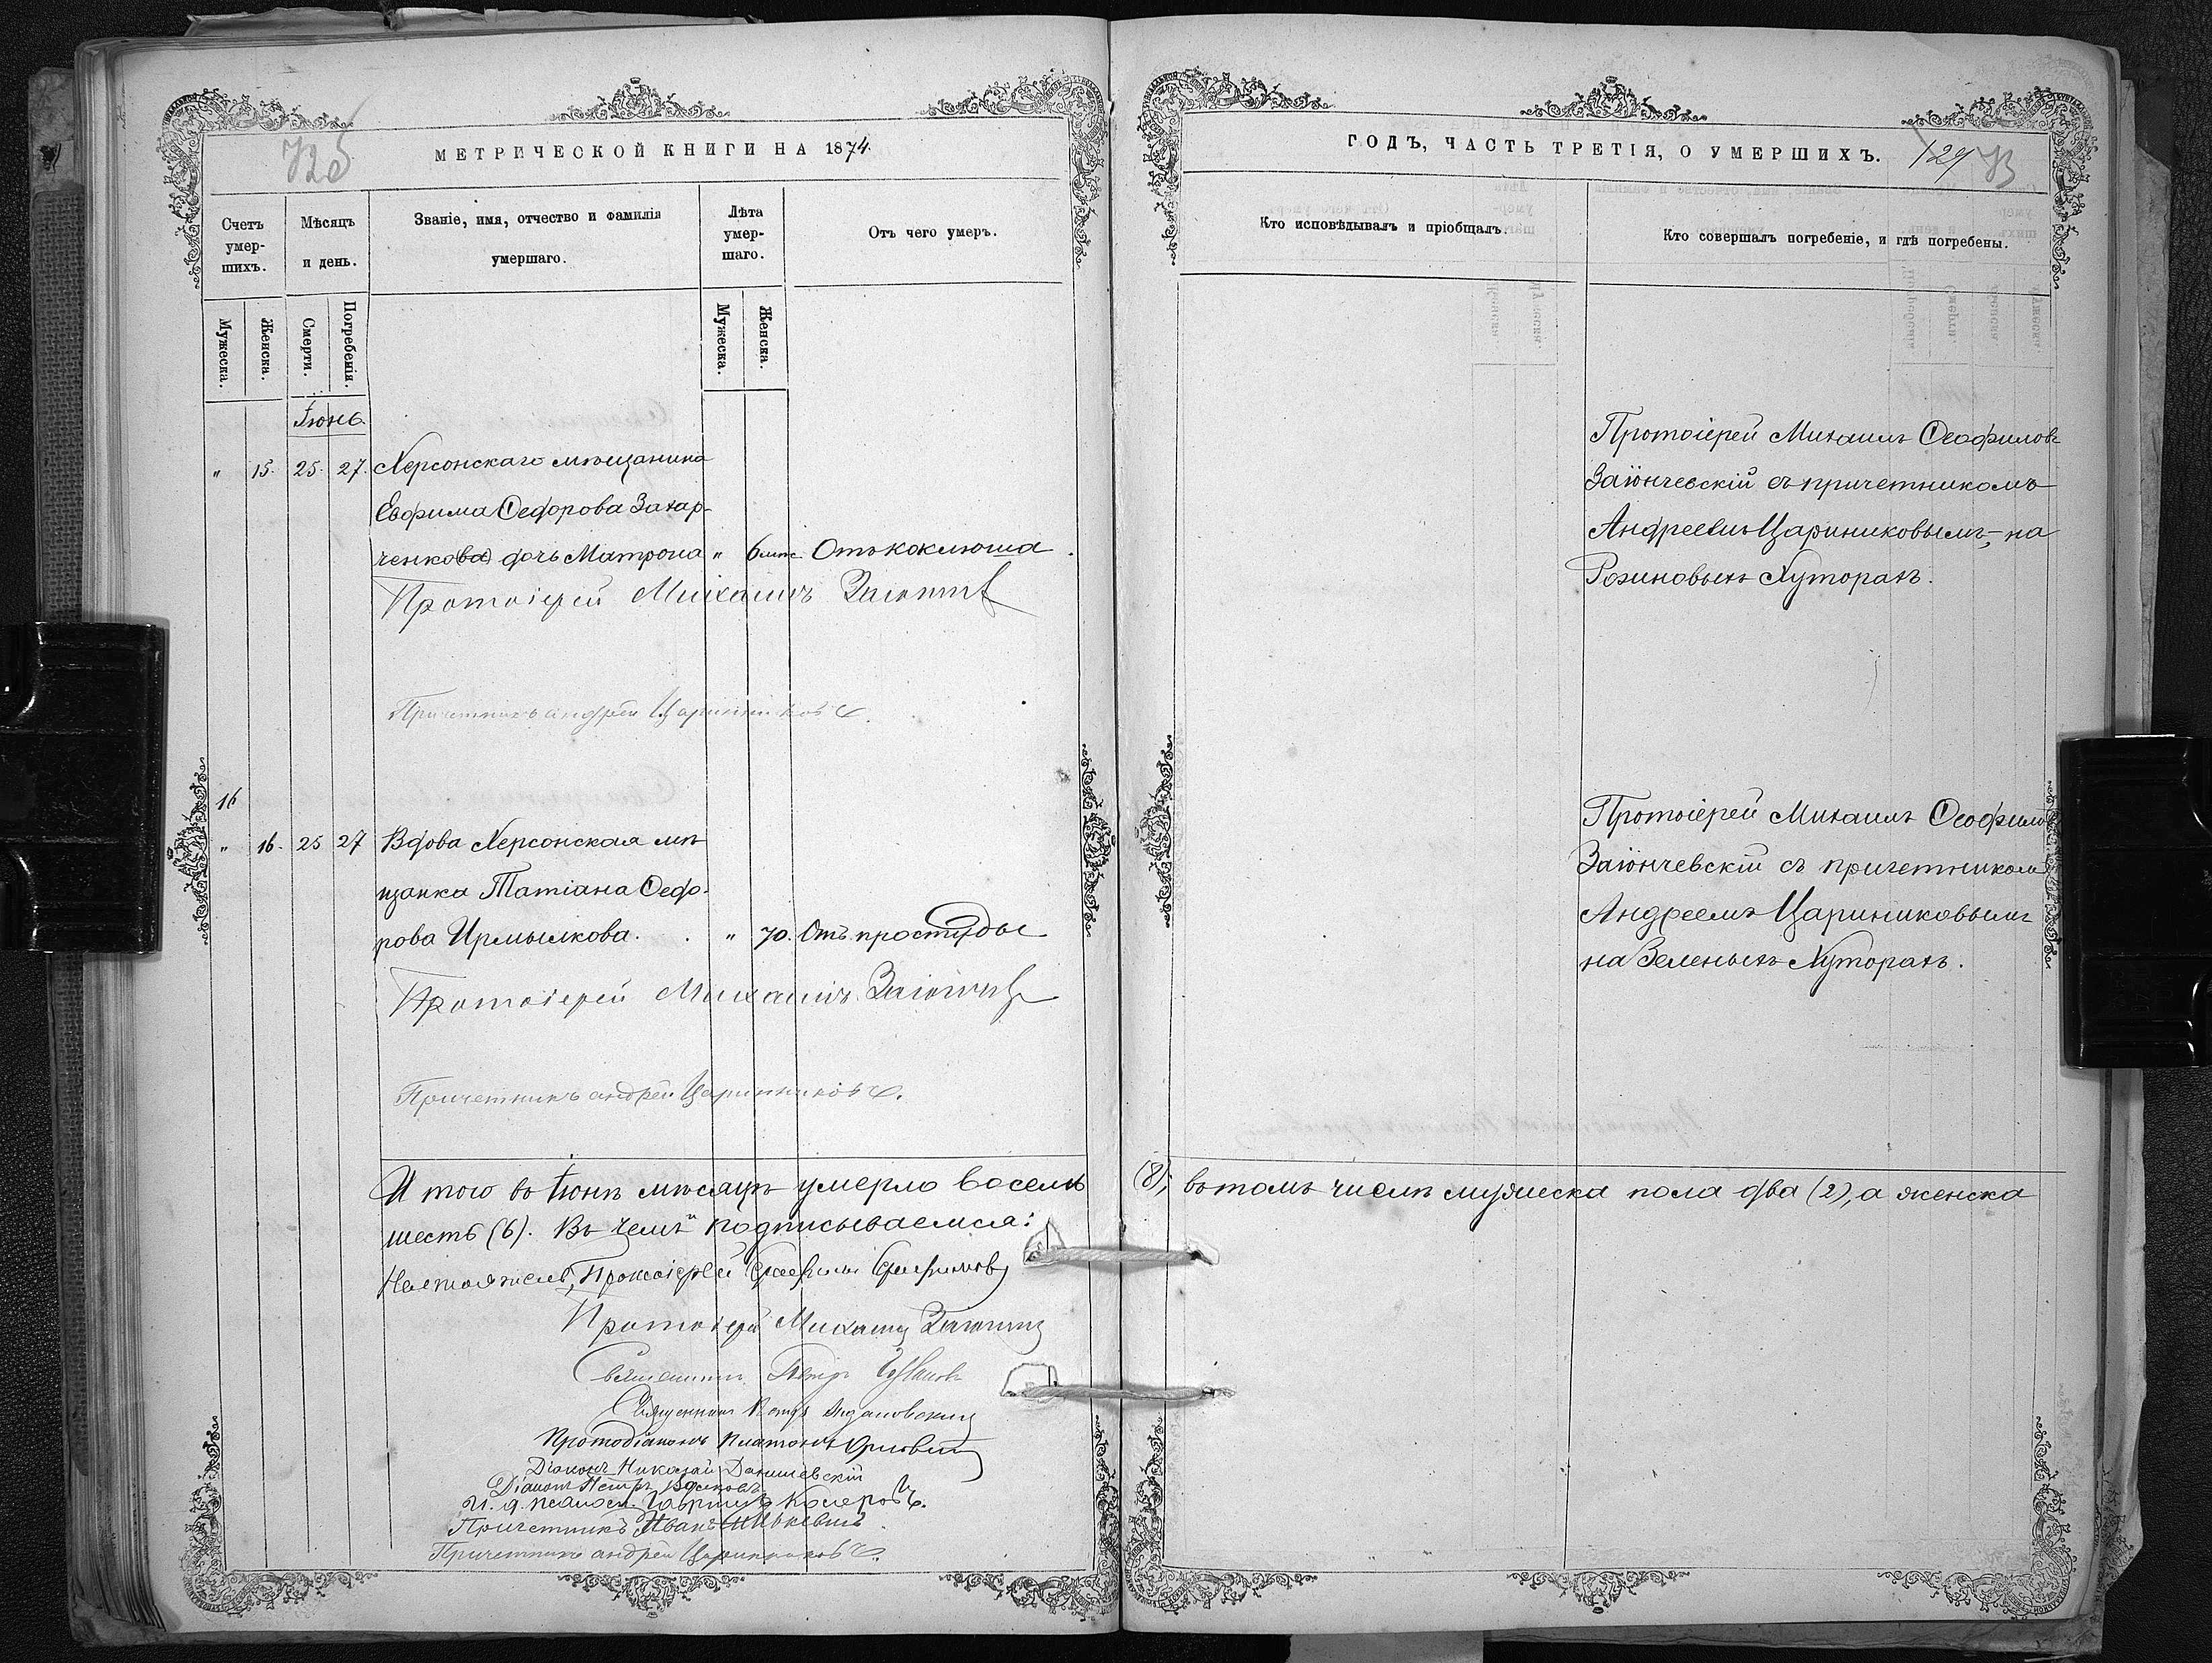 725
МЕТРИЧЕСКОЙ КНИГИ НА 1874.
Счетъ умер-шихъ.
Мѣсяцъ и день.
Званіе, имя, отчество и фамилія умершаго.
Лѣта умер-шаго.
Отъ чего умеръ.
Мужеска.
Женска.
Смерти.
Погребенія.
Мужеска.
Женска.
Іюнь
" 15. 25. 27. Херсонскаго мѣщанина
Евфима Ѳедорова Захар-
ченко(ва) дочь Матрона " 6 мѣс. Отъ коклюша.
Протоіерей Михаилъ
Причетникъ Андрей Царинниковъ
16
" 16. 25 27 Вдова Херсонская мѣ-
щанка Татіана Ѳедо-
рова Ирмылкова. " 70. Отъ простуды
Протоіерей Михаилъ
Причетникъ Андрей Царинниковъ
И того въ Іюнѣ мѣсяцѣ умерло восемь
шесть (6). Въ чемъ подписываемся:
Настоятель, Протоіерей
Протоіерей Михаилъ
Священникъ Петръ
Священникъ
Протодіаконъ Платонъ
Діаконъ Николай Данишевскій
Діаконъ Петръ
И. д. псалом. Гавріилъ
Причетникъ Иванъ
Причетникъ Андрей Царинниковъ
ГОДЪ, ЧАСТЬ ТРЕТІЯ, О УМЕРШИХЪ.
129
Кто исповѣдывалъ и пріобщалъ.
Кто совершалъ погребеніе, и гдѣ погребены.
Протоіерей Михаилъ Ѳеофиловъ
Заіончевскій съ причетникомъ
Андреемъ Цариниковымъ, на
Розиновыхъ Хуторахъ.
Протоіерей Михаилъ Ѳеофилов
Заіончевскій съ причетником
Андреемъ Цариниковымъ
на Зеленыхъ Хуторахъ.
(8); въ томъ числѣ мужеска пола два (2), а женска